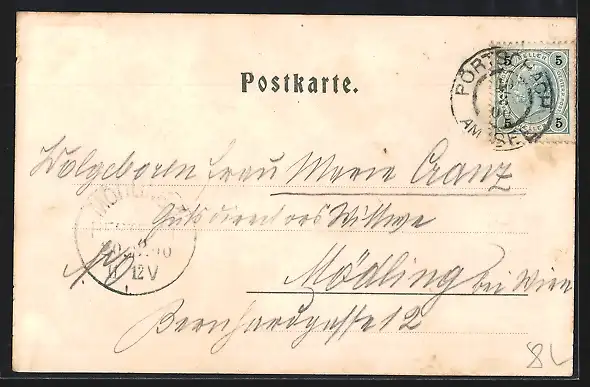 Postkarte.
PÖRTSCHACH
AM SEE
5 5
5 5
Wolgeboren Frau Marie Cranz
Gutsdirectors Wittwe
Mödling bei Wien
Bernhardgasse 12
12 V
8L